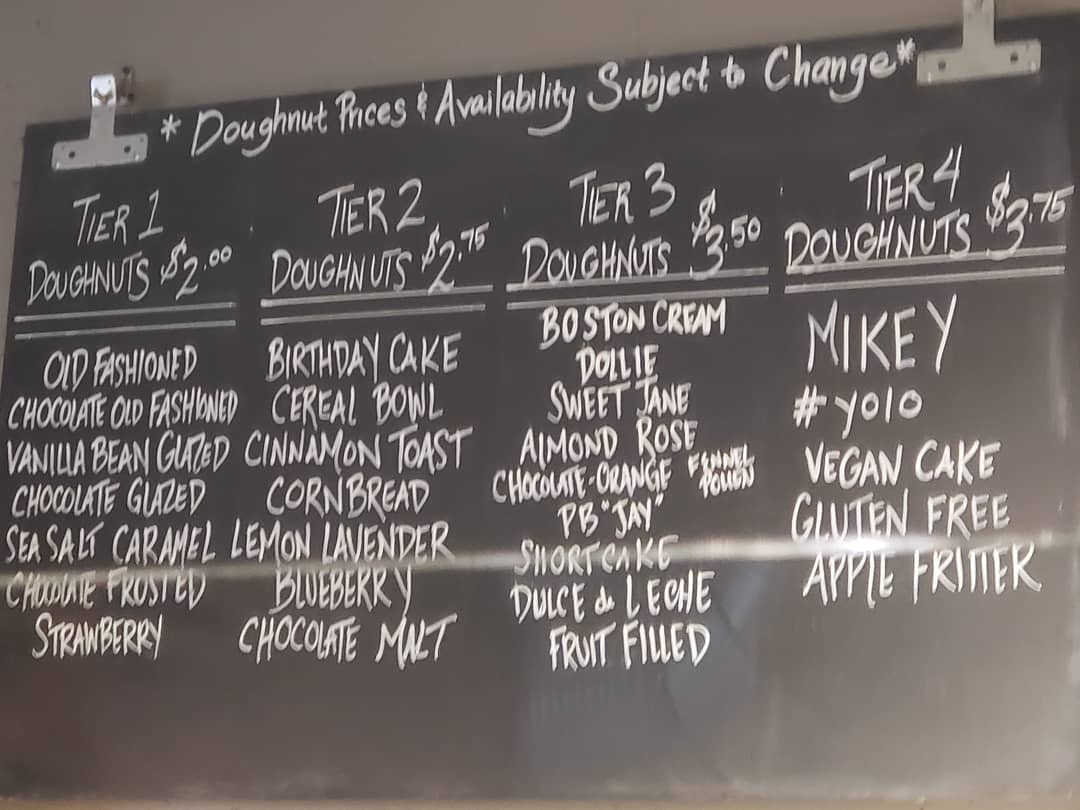 * Doughnut Prices & Availability Subject to Change*
TIER 1
DOUGHNUTS $2.00
OLD FASHIONED
CHOCOLATE OLD FASHIONED
VANILLA BEAN GLAZED
CHOCOLATE GLAZED
SEA SALT CARAMEL
CHOCOLATE FROSTED
STRAWBERRY
TIER 2
DOUGHNUTS $2.75
BIRTHDAY CAKE
CEREAL BOWL
CINNAMON TOAST
CORNBREAD
LEMON LAVENDER
BLUEBERRY
CHOCOLATE MALT
TIER 3
DOUGHNUTS $3.50
BOSTON CREAM
DOLLIE
SWEET JANE
ALMOND ROSE
CHOCOLATE-ORANGE FENNEL POLLEN
PB "JAY"
SHORTCAKE
DULCE de LECHE
FRUIT FILLED
TIER 4
DOUGHNUTS $3.75
MIKEY
#yolo
VEGAN CAKE
GLUTEN FREE
APPLE FRITTER